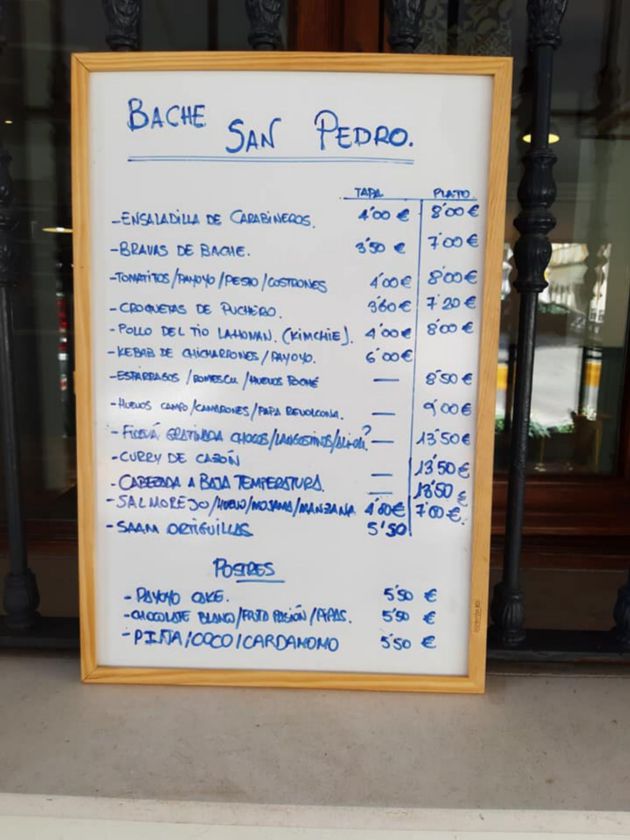 BACHE SAN PEDRO.
TAPA PLATO
- ENSALADILLA DE CARABINEROS. 4'00 € 8'00 €
- BRAVAS DE BACHE. 3'50 € 7'00 €
- TOMATITOS/PAYOYO/PESTO/COSTRONES 4'00 € 8'00 €
- CROQUETAS DE PUCHERO. 3'60 € 7'20 €
- POLLO DEL TIO LAHONAN. (KIMCHIE). 4'00 € 8'00 €
- KEBAB DE CHICHARRONES/PAYOYO. 6'00 €
- ESPÁRRAGOS/ROMESCU/HUEVOS POCHÉ — 8'50 €
- HUEVOS CAMPO/CAMARONES/PAPA REVOLCONA. — 9'00 €
- FIDEVÁ GRATINADA CHOCOS/LANGOSTINOS/ — 13'50 €
- CURRY DE CAZÓN — 13'50 €
- CABEZADA A BAJA TEMPERATURA. — 13'50 €
- SALMOREJO/HUEVO/MOJAMA/MANZANA 4'00 € 7'00 €.
- SAAM ORTIGUILLAS 5'50
POSTRES
- PAYOYO CAKE. 5'50 €
- CHOCOLATE BLANCO/FRUTA PASIÓN/PIPAS. 5'50 €
- PIÑA/COCO/CARDAMOMO 5'50 €